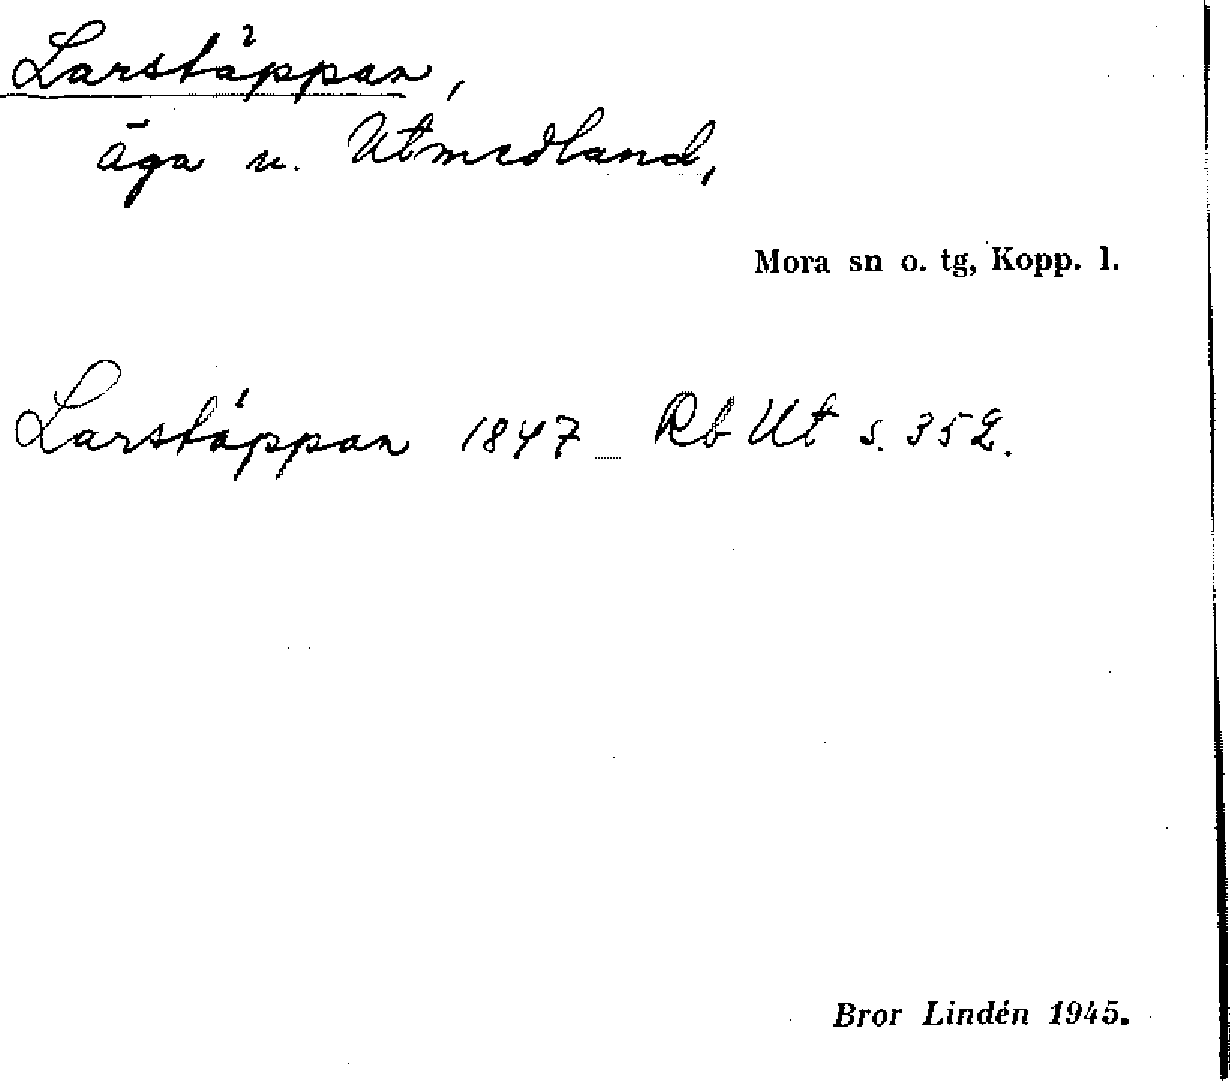 Larstäppan,
äga u. Utmedland,
Mora sn o. tg, Kopp. l.
Larstäppan 1847 Rb Ut s. 352.
Bror Lindén 1945.